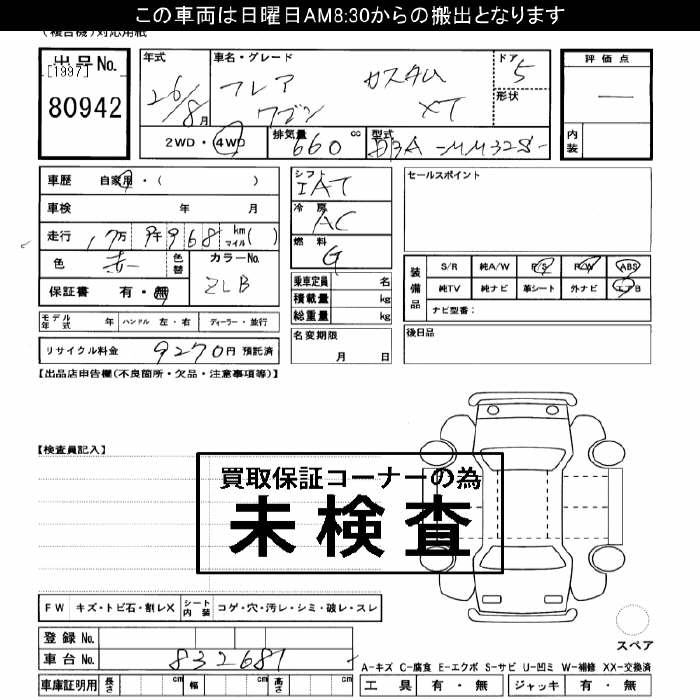 この車両は日曜日AM8:30からの搬出となります
(複合機)対応用紙
出品No.
[1997]
80942
年式 車名・グレード ドア 評価点
26/8月 フレア カスタム 5 ―
ワゴン XT 形状
2WD・4WD 排気量 660 cc 型式 DBA-MM32S 内装
車歴 自家用・( )
車検 年 月
走行 17万 9千968 km マイル( )
色 赤 色替 カラーNo.
ZLB
保証書 有・無
モデル年式 年 ハンドル 左・右 ディーラー・並行
リサイクル料金 9270円 預託済
シフト IAT
冷房 AC
燃料 G
乗車定員 名
積載量 kg
総重量 kg
名変期限
月 日
セールスポイント
装備品 S/R 純A/W P/S P/W ABS
純TV 純ナビ 革シート 外ナビ エアB
ナビ型番:
後日品
【出品店申告欄(不良箇所・欠品・注意事項等)】
【検査員記入】
買取保証コーナーの為
未検査
FW キズ・トビ石・割レX シート内装 コゲ・穴・汚レ・シミ・破レ・スレ
登録No.
車台No. 832687
車庫証明用 長さ cm 幅 cm 高さ cm
スペア
A-キズ C-腐食 E-エクボ S-サビ U-凹ミ W-補修 XX-交換済
工具 有・無 ジャッキ 有・無